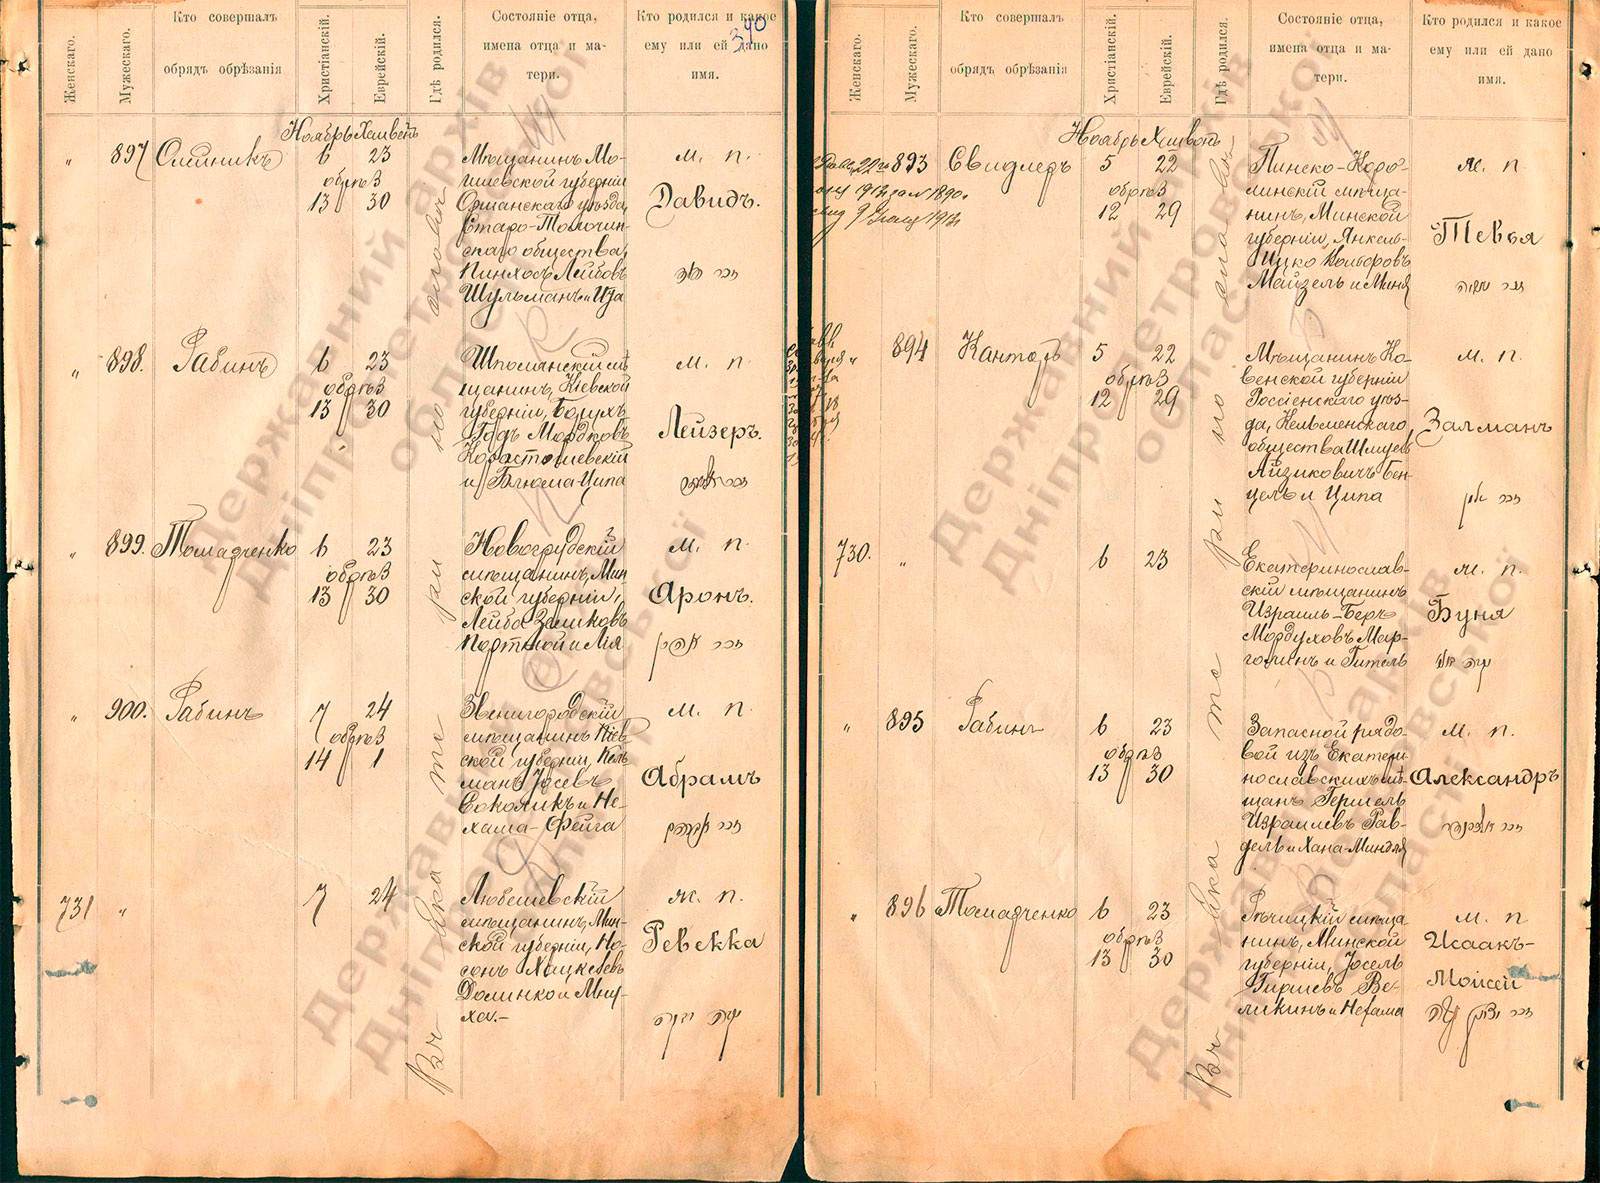 340
Женскаго.
Мужескаго.
Кто совершалъ
обрядъ обрѣзанія
Христіанскій.
Еврейскій.
Гдѣ родился.
Состояніе отца,
имена отца и ма-
тери.
Кто родился и какое
ему или ей дано
имя.
Ноябрь Хешвенъ
" 897 Олейникъ 6 23
обрѣз
13 30
Мѣщанинъ Мо-
гилевской губерніи
Оршанскаго уѣзда,
Старо-Толочин-
скаго общества,
Пинхосъ Лейбовъ
Шульманъ и Ида
м. п.
Давидъ.
זכר
" 898. Рабинъ 6 23
обрѣз
13 30
Шполянскій мѣ
щанинъ, Кіевской
губерніи, Борухъ
Годъ Мордковъ
Коростошевскій
и Блюма-Ципа
м. п.
Лейзеръ.
זכר
" 899. Томадченко 6 23
обрѣз
13 30
Новогрудскій
мѣщанинъ, Мин
ской губерніи,
Лейба Зеликовъ
Портной и Лія
м. п.
Аронъ.
זכר אהרן
" 900. Рабинъ 7 24
обрѣз
14 1
Звенигородскій
мѣщанинъ Кіев
ской губерніи, Кель
манъ Іосевъ
Соколикъ и Не-
хама-Фейга
м. п.
Абрамъ
זכר אברהם
731 " 7 24
Любешевскій
мѣщанинъ, Мин-
ской губерніи, Но-
сонъ Хацкелевъ
Долинко и Мну-
ха.-
ж. п.
Ревекка
רבקה
въ Ека те ри но славѣ
Женскаго.
Мужескаго.
Кто совершалъ
обрядъ обрѣзанія
Христіанскій.
Еврейскій.
Гдѣ родился.
Состояніе отца,
имена отца и ма-
тери.
Кто родился и какое
ему или ей дано
имя.
Ноябрь Хешвонъ
893 Свидлеръ 5 22
обрѣз
12 29
Пинско-Каро-
линскій мѣща-
нинъ, Минской
губерніи, Янкель-
Ицко Вольфовъ
Мейзель и Миня
м. п
Тевья
זכר
" 894 Канторъ 5 22
обрѣз
12 29
Мѣщанинъ Ко-
венской губерніи
Россіенскаго уѣз-
да, Кельменскаго
общества Шмуель
Айзиковичъ Бен-
цель и Ципа
м. п.
Залманъ
זכר
730. " 6 23
Екатеринослав-
скій мѣщанинъ
Израиль-Беръ
Мордуховъ Мар-
голинъ и Гитель
ж. п.
Буня
" 895 Рабинъ 6 23
обрѣз
13 30
Запасной рядо-
вой изъ Екатери
нославскихъ мѣ-
щанъ Гершель
Израилевъ Рав-
дель и Хана-Миндля
м. п.
Александръ
זכר
" 896 Томадченко 6 23
обрѣз
13 30
Рѣчицкій мѣща-
нинъ, Минской
губерніи, Іосель
Гиршевъ Ве-
ликинъ и Нехама
м. п
Исаакъ-
Мойсей
זכר יצחק משה
въ Ека те ри но славѣ
Державний архів
Дніпропетровської
області